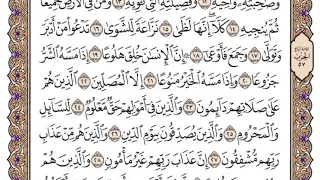 وَصَٰحِبَتِهِۦ وَأَخِيهِ ١٢ وَفَصِيلَتِهِ ٱلَّتِي تُـْٔوِيهِ ١٣ وَمَن فِي ٱلْأَرْضِ جَمِيعًا
ثُمَّ يُنجِيهِ ١٤ كَلَّآ إِنَّهَا لَظَىٰ ١٥ نَزَّاعَةً لِّلشَّوَىٰ ١٦ تَدْعُواْ مَنْ أَدْبَرَ
وَتَوَلَّىٰ ١٧ وَجَمَعَ فَأَوْعَىٰٓ ١٨ ۞ إِنَّ ٱلْإِنسَٰنَ خُلِقَ هَلُوعًا ١٩ إِذَا مَسَّهُ ٱلشَّرُّ
جَزُوعًا ٢٠ وَإِذَا مَسَّهُ ٱلْخَيْرُ مَنُوعًا ٢١ إِلَّا ٱلْمُصَلِّينَ ٢٢ ٱلَّذِينَ هُمْ
عَلَىٰ صَلَاتِهِمْ دَآئِمُونَ ٢٣ وَٱلَّذِينَ فِيٓ أَمْوَٰلِهِمْ حَقٌّ مَّعْلُومٌ ٢٤ لِّلسَّآئِلِ
وَٱلْمَحْرُومِ ٢٥ وَٱلَّذِينَ يُصَدِّقُونَ بِيَوْمِ ٱلدِّينِ ٢٦ وَٱلَّذِينَ هُم مِّنْ عَذَابِ
رَبِّهِم مُّشْفِقُونَ ٢٧ إِنَّ عَذَابَ رَبِّهِمْ غَيْرُ مَأْمُونٍ ٢٨ وَٱلَّذِينَ هُمْ
الحزب
٥٧